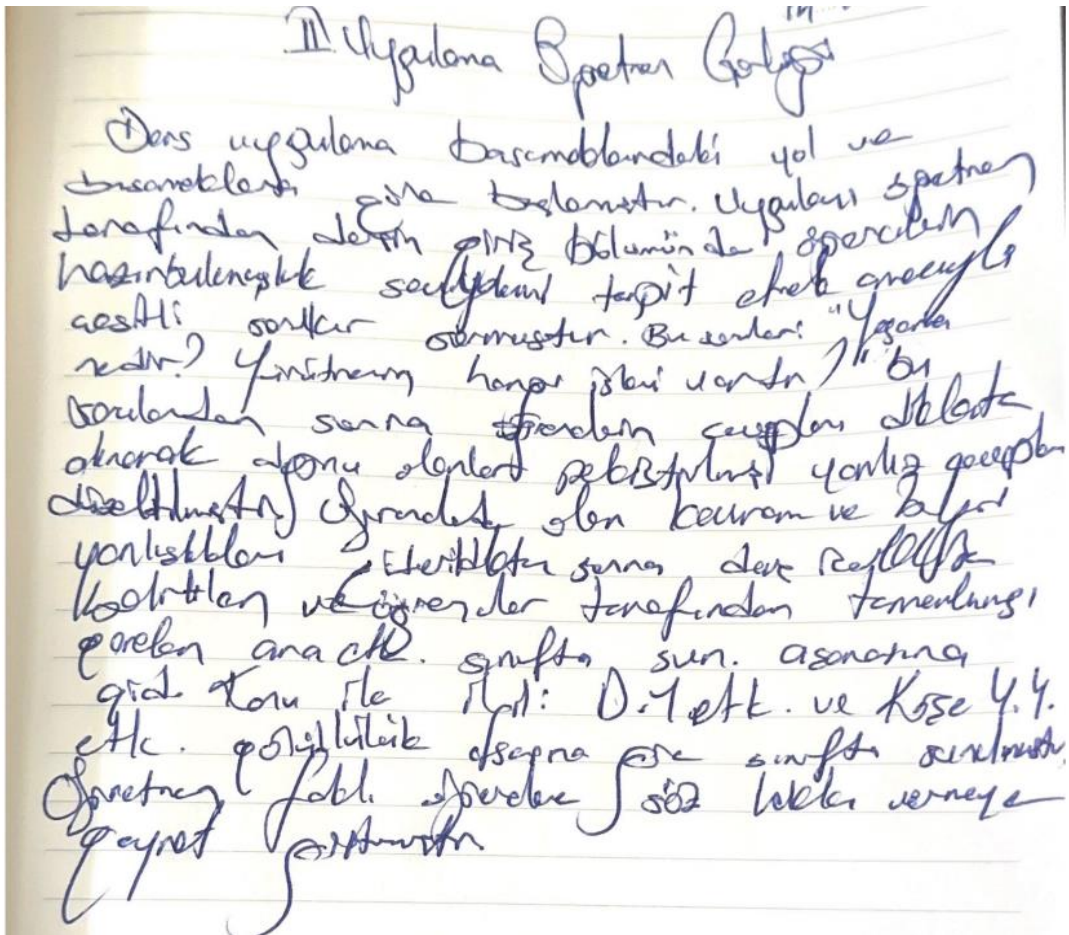 II. Uygulama Öğretmen Görüşü
Ders uygulama basamaklarındaki yol ve
basamaklara göre başlamıştır. Uygulayıcı öğretmen
tarafından dersin giriş bölümünde öğrencilerin
hazırbulunuşluk seviyelerini tespit etmek amacıyla
çeşitli sorular sormuştur. Bu soruları: "Yaşama
nedir? Yürütmenin hangi işleri vardır?" bu
sorulardan sonra öğrencilerin cevapları dikkate
alınarak doğru olanları pekiştirilmiş yanlış cevapları
düzeltilmiştir. Öğrencilerde olan kavram ve bilgi
yanlışlıkları sonra
ve öğrenciler tarafından tamamlanması
gereken ana etk. sınıfta sun. aşamasına
Konu ile ilgili: D.Y etk. ve Köşe Y.Y.
etk. göre sınıfta sunulmuştur.
Öğretmen farklı öğrencilere söz hakkı vermeye
gayret göstermiştir.